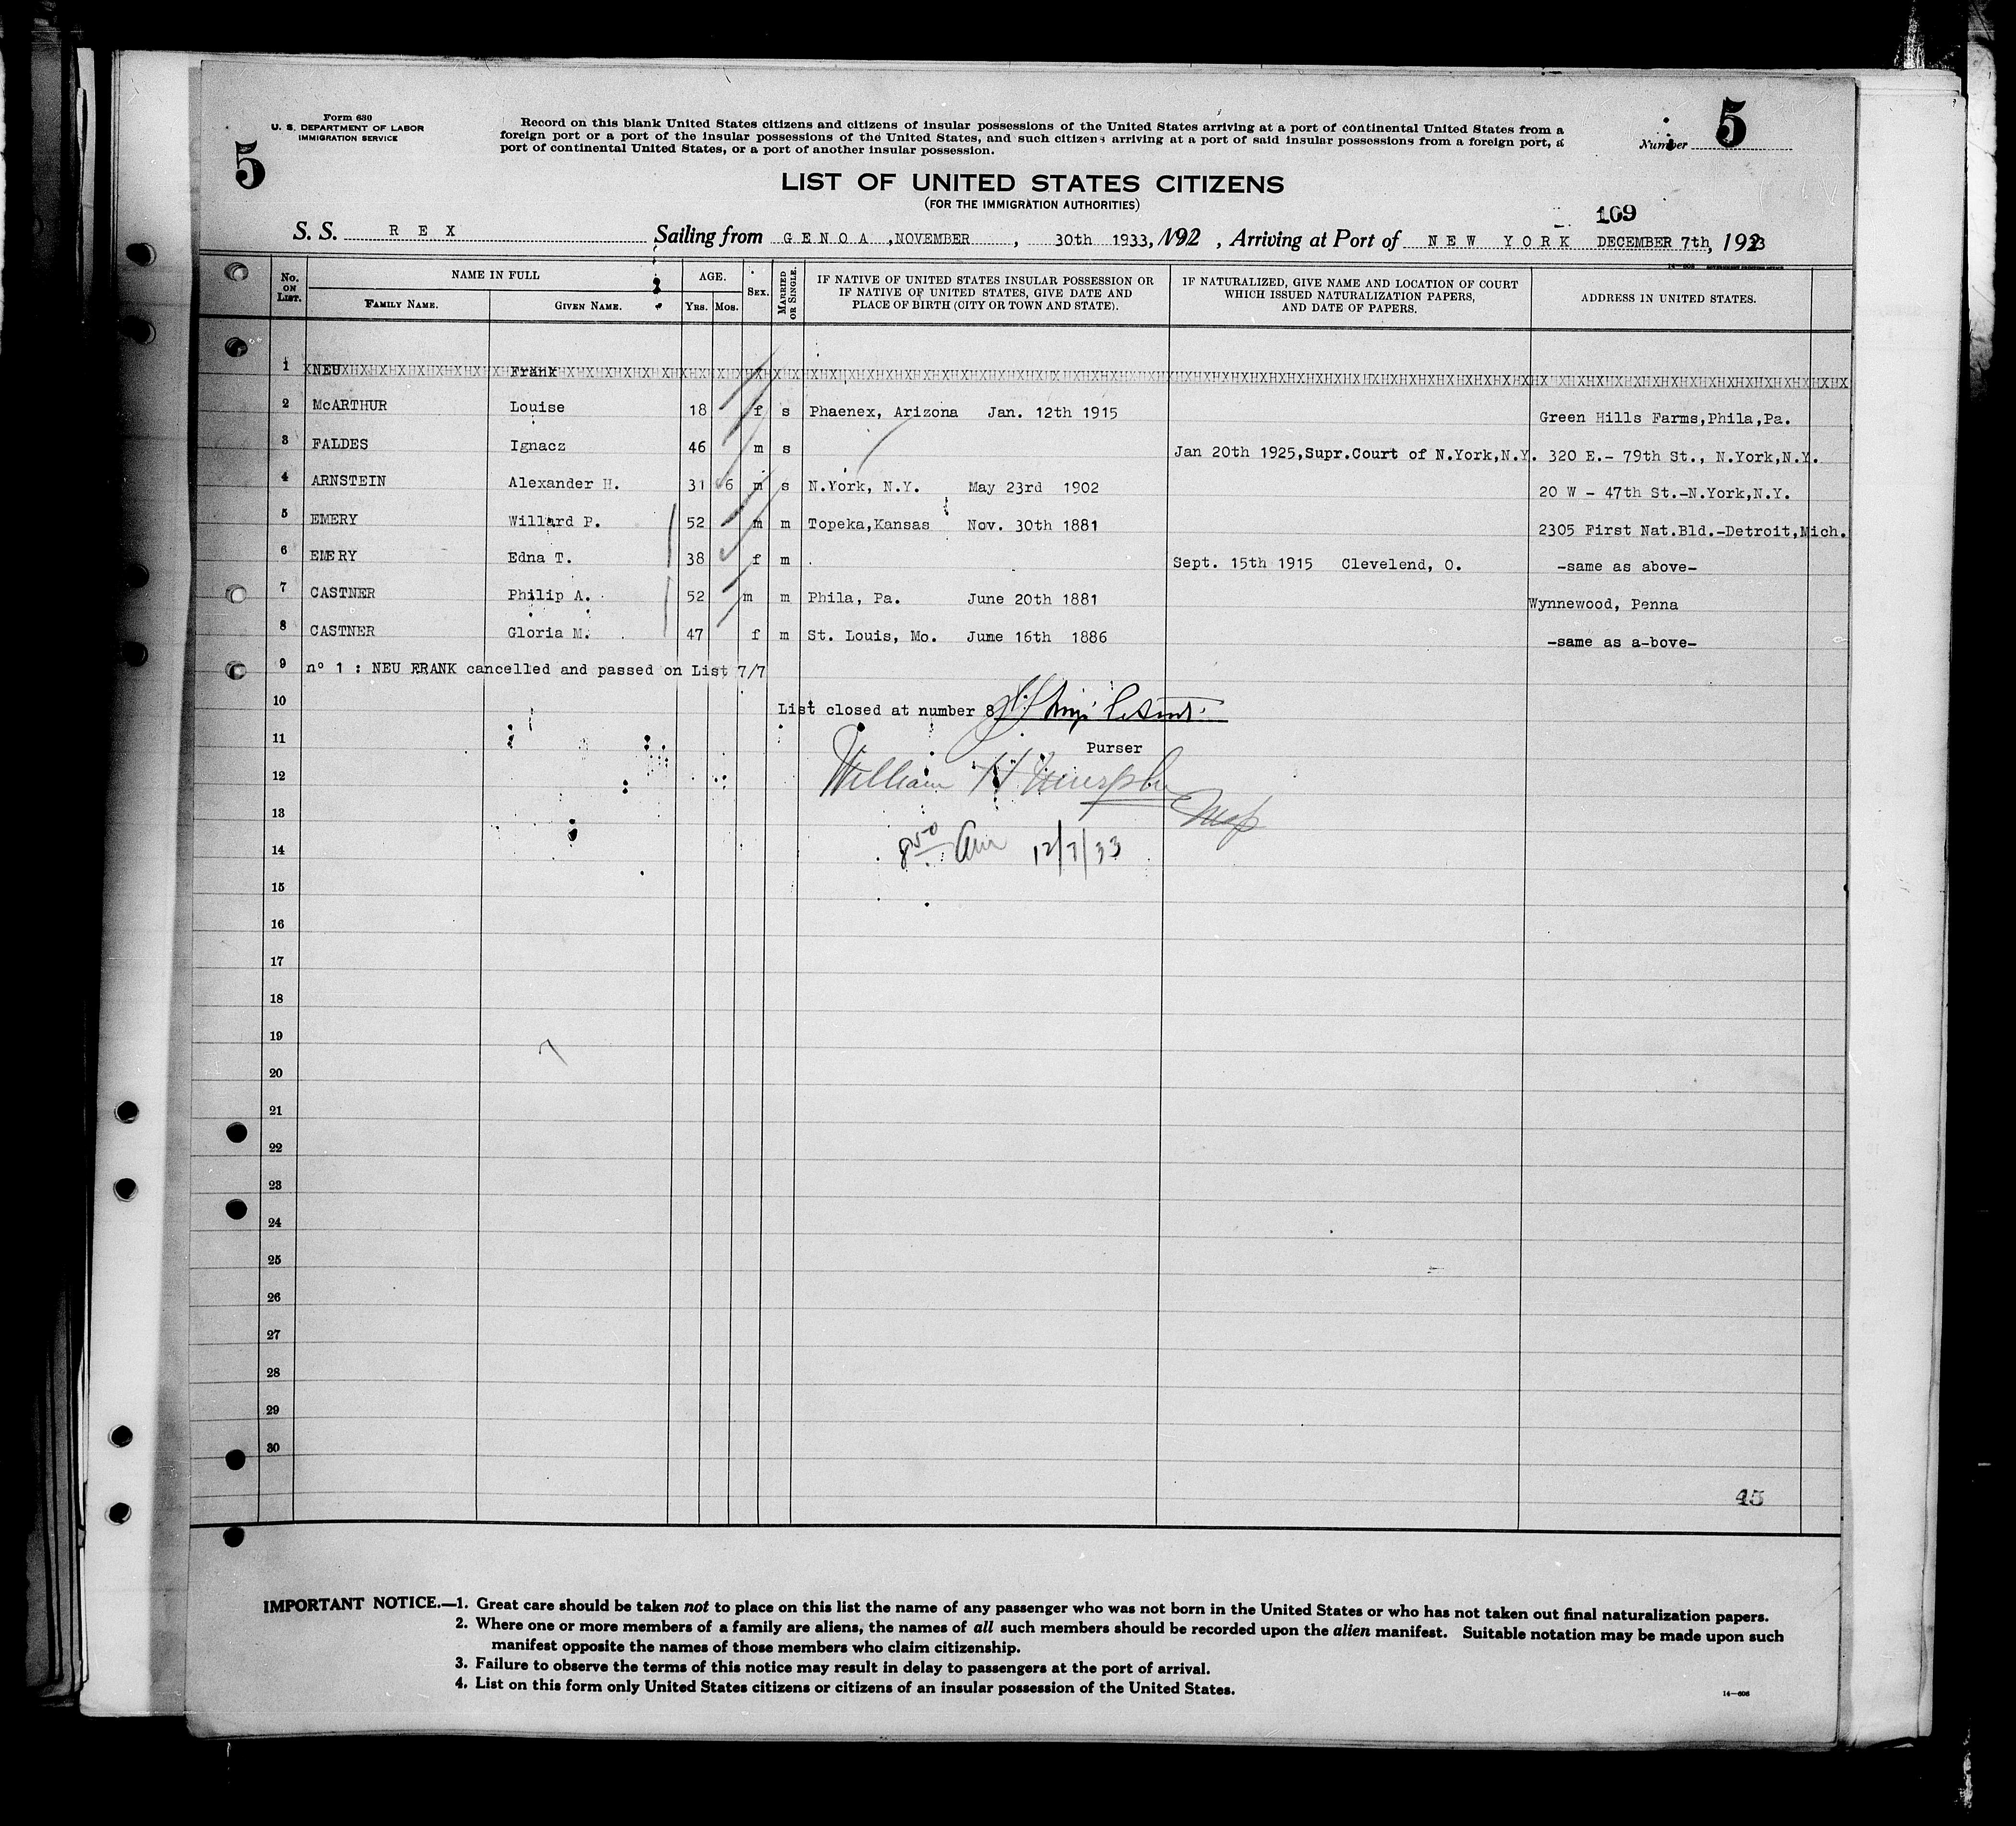 5
Form 630
U. S. DEPARTMENT OF LABOR
IMMIGRATION SERVICE
Record on this blank United States citizens and citizens of insular possessions of the United States arriving at a port of continental United States from a
foreign port or a port of the insular possessions of the United States, and such citizens arriving at a port of said insular possessions from a foreign port, a
port of continental United States, or a port of another insular possession.
Number 5
LIST OF UNITED STATES CITIZENS
(FOR THE IMMIGRATION AUTHORITIES)
109
S. S. REX Sailing from GENOA ,NOVEMBER , 30th 1933, 192 , Arriving at Port of NEW YORK DECEMBER 7th, 1933
No. ON LIST. NAME IN FULL AGE. SEX. MARRIED OR SINGLE. IF NATIVE OF UNITED STATES INSULAR POSSESSION OR IF NATIVE OF UNITED STATES, GIVE DATE AND PLACE OF BIRTH (CITY OR TOWN AND STATE). IF NATURALIZED, GIVE NAME AND LOCATION OF COURT WHICH ISSUED NATURALIZATION PAPERS, AND DATE OF PAPERS. ADDRESS IN UNITED STATES.
FAMILY NAME. GIVEN NAME. YRS. MOS.
1 NEU Frank
2 McARTHUR Louise 18 f s Phaenex, Arizona Jan. 12th 1915 Green Hills Farms,Phila,Pa.
3 FALDES Ignacz 46 m s Jan 20th 1925,Supr.Court of N.York,N.Y. 320 E.- 79th St., N.York,N.Y.
4 ARNSTEIN Alexander H. 31 6 m s N.York, N.Y. May 23rd 1902 20 W - 47th St.-N.York,N.Y.
5 EMERY Willard P. 52 m m Topeka,Kansas Nov. 30th 1881 2305 First Nat.Bld.-Detroit,Mich.
6 EMERY Edna T. 38 f m Sept. 15th 1915 Clevelend, O. -same as above-
7 CASTNER Philip A. 52 m m Phila, Pa. June 20th 1881 Wynnewood, Penna
8 CASTNER Gloria M. 47 f m St. Louis, Mo. June 16th 1886 -same as a-bove-
9 nº 1 : NEU FRANK cancelled and passed on List 7/7
10 List closed at number 8
11 Purser
12 William H Murphy
13
14 8 50 am 12/7/33
15
16
17
18
19
20
21
22
23
24
25
26
27
28
29
30
45
IMPORTANT NOTICE.—1. Great care should be taken not to place on this list the name of any passenger who was not born in the United States or who has not taken out final naturalization papers.
2. Where one or more members of a family are aliens, the names of all such members should be recorded upon the alien manifest. Suitable notation may be made upon such
manifest opposite the names of those members who claim citizenship.
3. Failure to observe the terms of this notice may result in delay to passengers at the port of arrival.
4. List on this form only United States citizens or citizens of an insular possession of the United States.
14—606